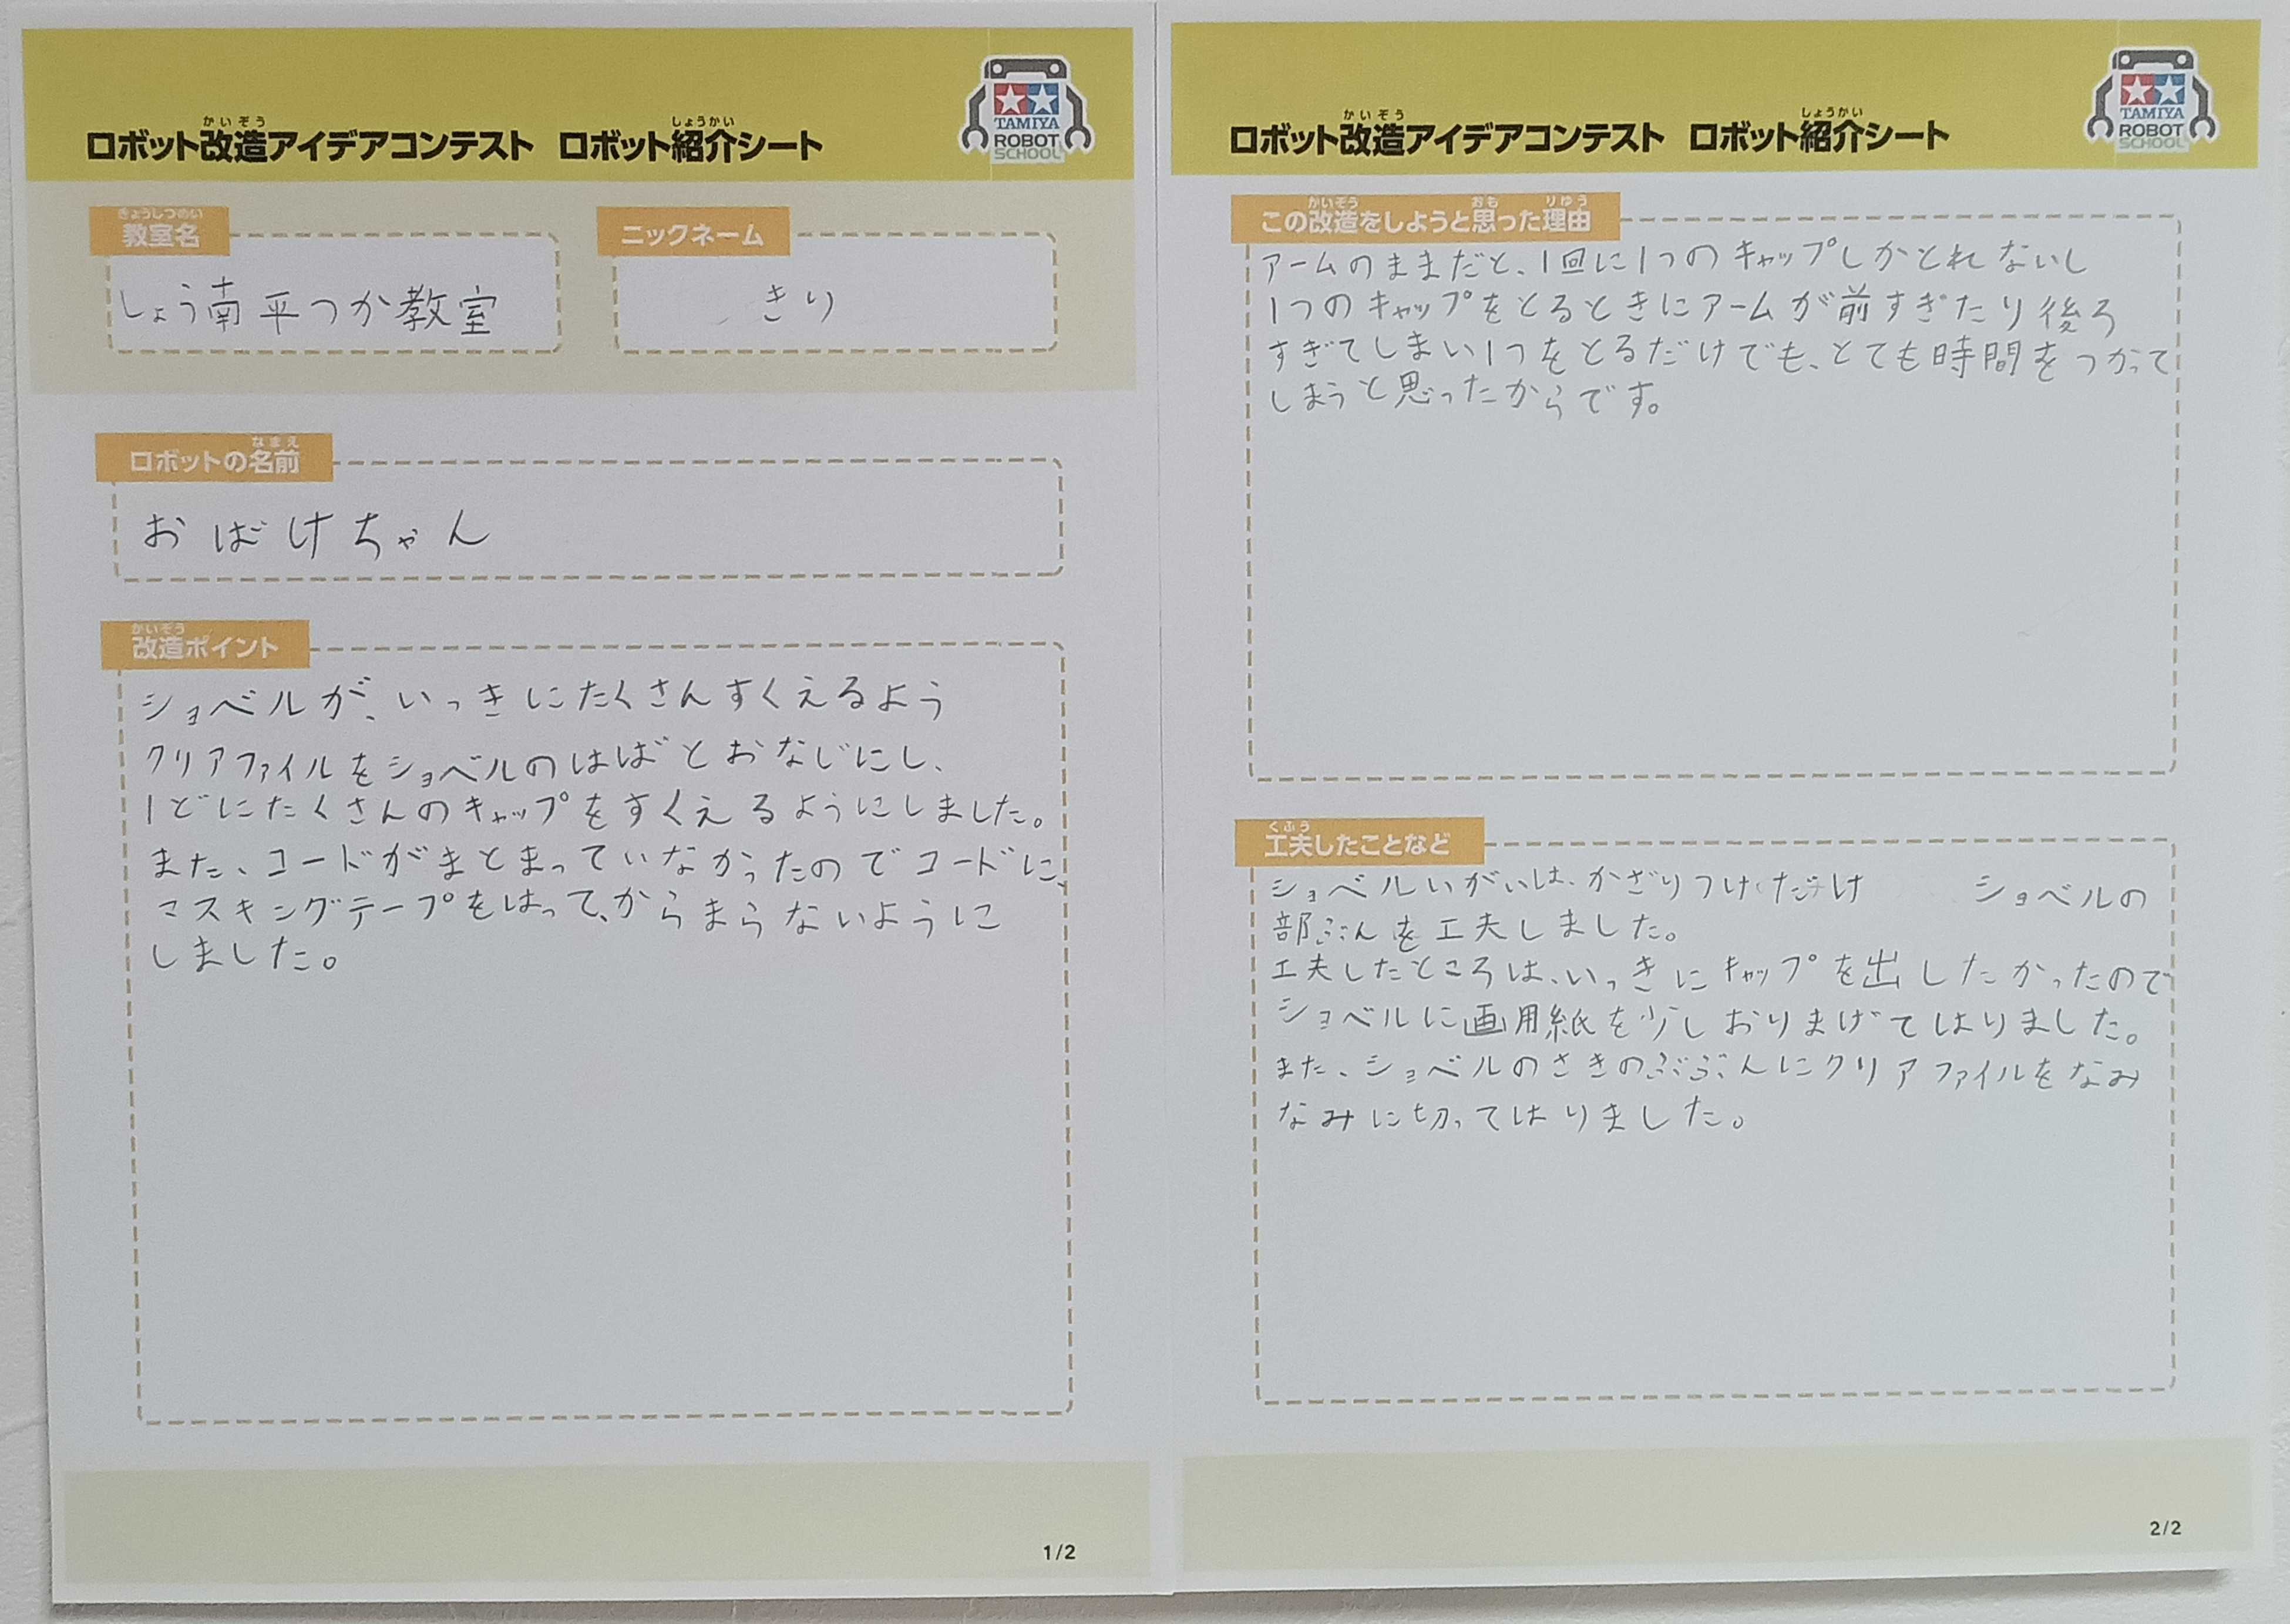 かいぞう
しょうかい
ロボット改造アイデアコンテスト ロボット紹介シート
TAMIYA
ROBOT
SCHOOL
きょうしつめい
教室名
しょう南平つか教室
ニックネーム
きり
なまえ
ロボットの名前
おばけちゃん
かいぞう
改造ポイント
ショベルが、いっきにたくさんすくえるよう
クリアファイルをショベルのはばとおなじにし、
1どにたくさんのキャップをすくえるようにしました。
また、コードがまとまっていなかったのでコードに、
マスキングテープをはって、からまらないように
しました。
1/2
かいぞう
しょうかい
ロボット改造アイデアコンテスト ロボット紹介シート
TAMIYA
ROBOT
SCHOOL
かいぞう おも りゆう
この改造をしようと思った理由
アームのままだと、1回に1つのキャップしかとれないし
1つのキャップをとるときにアームが前すぎたり後ろ
すぎてしまい1つをとるだけでも、とても時間をつかって
しまうと思ったからです。
くふう
工夫したことなど
ショベルいがいは、かざりつけだけ ショベルの
部ぶんを工夫しました。
工夫したところは、いっきにキャップを出したかったので
ショベルに画用紙を少しおりまげてはりました。
また、ショベルのさきのぶぶんにクリアファイルをなみ
なみに切ってはりました。
2/2